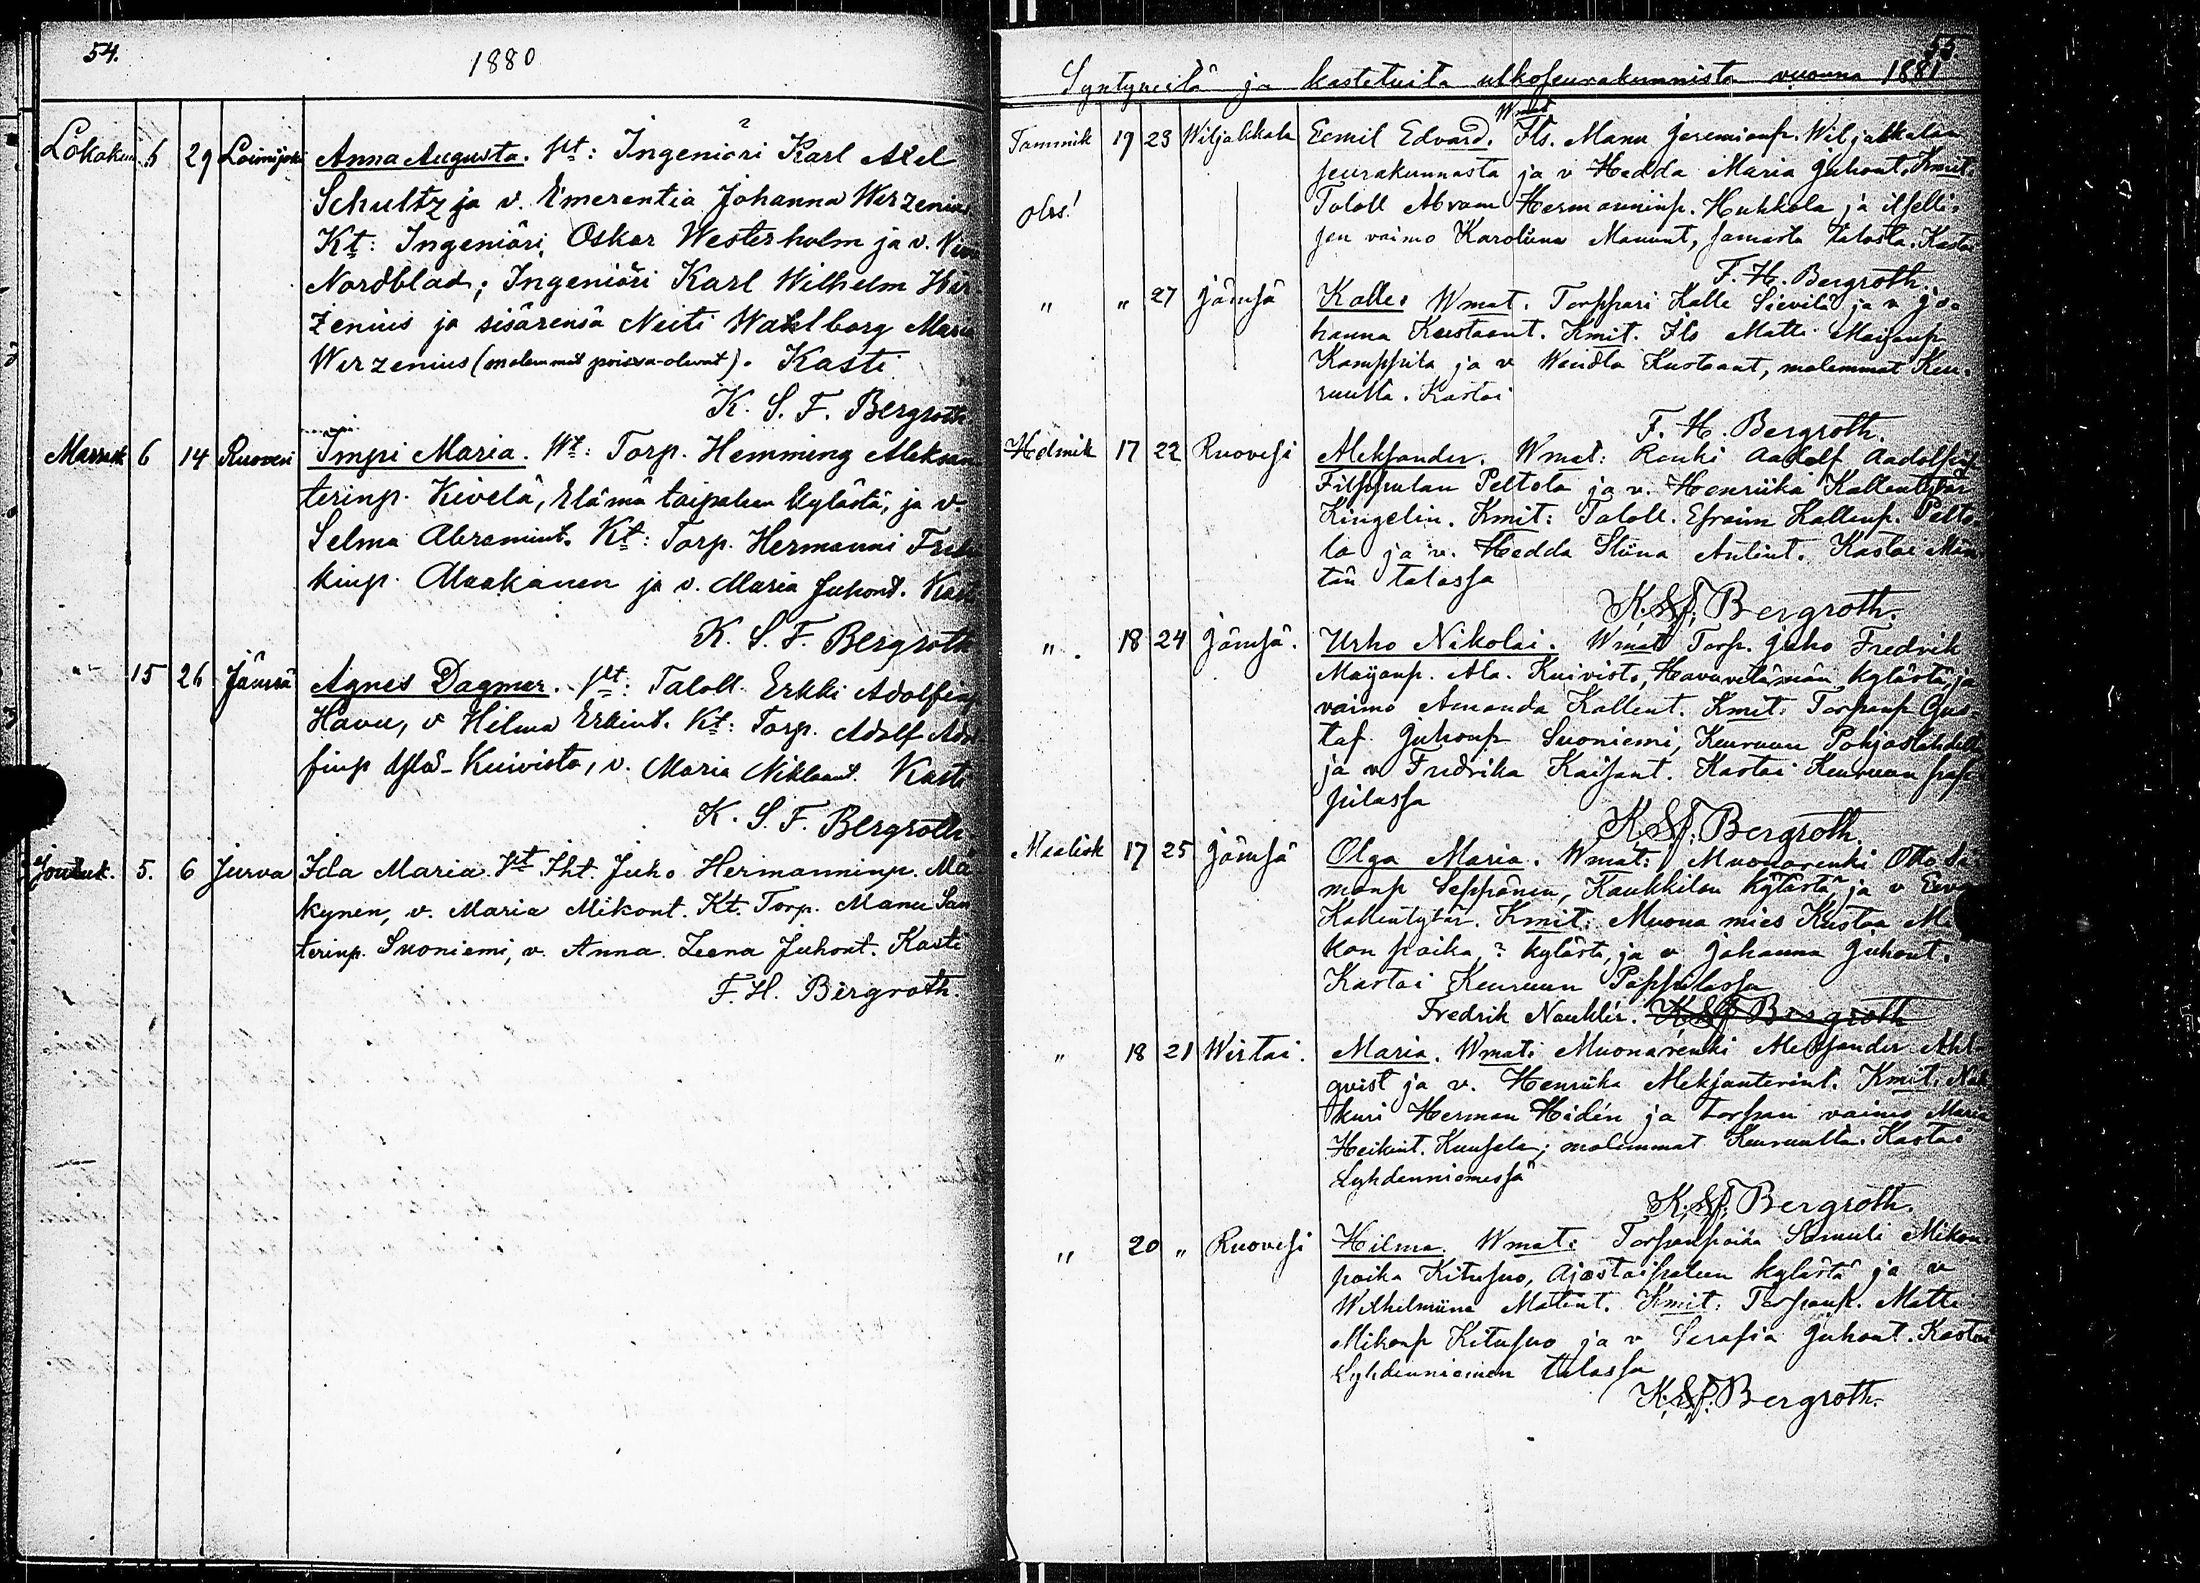 54.
1880
Lokakuu 5 29 Loimijoki Anna Augusta. Vt: Ingeniöri Karl Axel
Schultz ja v. Emerentia Johanna Wirzenius
Kt: Ingeniöri Oskar Westerholm ja v.
Nordblad; Ingeniöri Karl Wilhelm Wir-
zenius ja sisärensä Neiti Wahlborg Maria
Wirzenius (molemmat poissa-olevat). Kasti
K. S. F. Bergroth.
Marrask 6 14 Ruovesi Impi Maria. Vt: Torp. Hemming Aleksan
terinp. Kivelä, Elämä taipaleen kylästä, ja v.
Selma Abramint. Kt: Torp. Hermanni
kinp. Maakanen ja v. Maria Juhont. Kasti
K. S. F. Bergroth
15 26 Jämsä Agnes Dagmar. Vt: Taloll. Erkki Adolfinp
Havu, v Hilma Erkint. Kt: Torp. Adolf Adol
finp Ylä-Kuivisto, v. Maria Niklaant. Kasti
K. S. F. Bergroth
Jouluk. 5. 6 Jurva Ida Maria. Vt Iht. Juho Hermanninp. Mä
kynen, v. Maria Mikont. Kt. Torp. Manu San
terinp. Suoniemi, v. Anna Leena Juhont. Kasti
F. H. Bergroth.
55.
Syntyneitä ja kastetuita ulkoseurakunnista vuonna 1881
Wmat
Tammik 19 23 Wiljakkala Eemil Edvard. Its. Manu Jeremianp. Wiljakkalan
seurakunnasta ja v Hedda Maria Juhont. Kmit.
Taloll Abram Hermanninp. Huhkola ja itselli-
sen vaimo Karoliina Manunt, samasta talosta. Kastoi
F. H. Bergroth.
" " 27 Jämsä Kalle. Wmat. Torppari Kalle Sievilä ja v Jo-
hanna Kustaant. Kmit. Its Matti Maijanp
Kamppila ja v Wendla Kustaant, molemmat Keu-
ruulta. Kastoi
F. H. Bergroth.
Helmik 17 22 Ruovesi Aleksander. Wmat: Renki Aadolf Aadolfinp
Filppulan Peltola ja v. Henriika Kallentytär
Kingelin. Kmit: Taloll. Efraim Kallenp. Pelto-
la ja v. Hedda Stiina Antint. Kastoi Män
tän talossa
K. S. F. Bergroth.
" 18 24 Jämsä. Urho Nikolai. Wmat Torp. Juho Fredrik
Maijanp. Ala. Kuivisto, Havuvetämän kylästä ja
vaimo Amanda Kallent. Kmit: Torpanp Gus-
taf Juhonp Suoniemi, Keuruun Pohjaslahdelta
ja v Fredrika Kaisant. Kastoi Keuruun pap-
pilassa
K. S. F. Bergroth
Maalisk 17 25 Jämsä Olga Maria. Wmat: Muonarenki Otto Sä-
monp Seppänen, Kaukkilan kylästä ja v Eeva
Kallentytär. Kmit: Muona mies Kustaa Mi
kon poika ? kylästä, ja v Johanna Juhont.
Kastoi Keuruun Pappilassa
Fredrik Naukler. K S F Bergroth
" 18 21 Wirtai. Maria. Wmat: Muonarenki Aleksander Ahl-
qvist ja v. Henriika Aleksanterint. Kmit. Nah
kuri Herman Hidén ja torpan vaimo Maria
Heikint. Kuusela; molemmat Keuruulta. Kastoi
Lyhdenniemessä
K. S. F. Bergroth.
" 20 " Ruovesi Hilma. Wmat: Torpanpoika Samuli Mikon
poika Kitusuo, Ajostaipaleen kylästä ja v
Wilhelmiina Matint. Kmit: Torpanp. Matti
Mikonp Kitusuo ja v Serafia Juhont. Kastoi
Lyhdenniemen talossa
K. S. F. Bergroth.